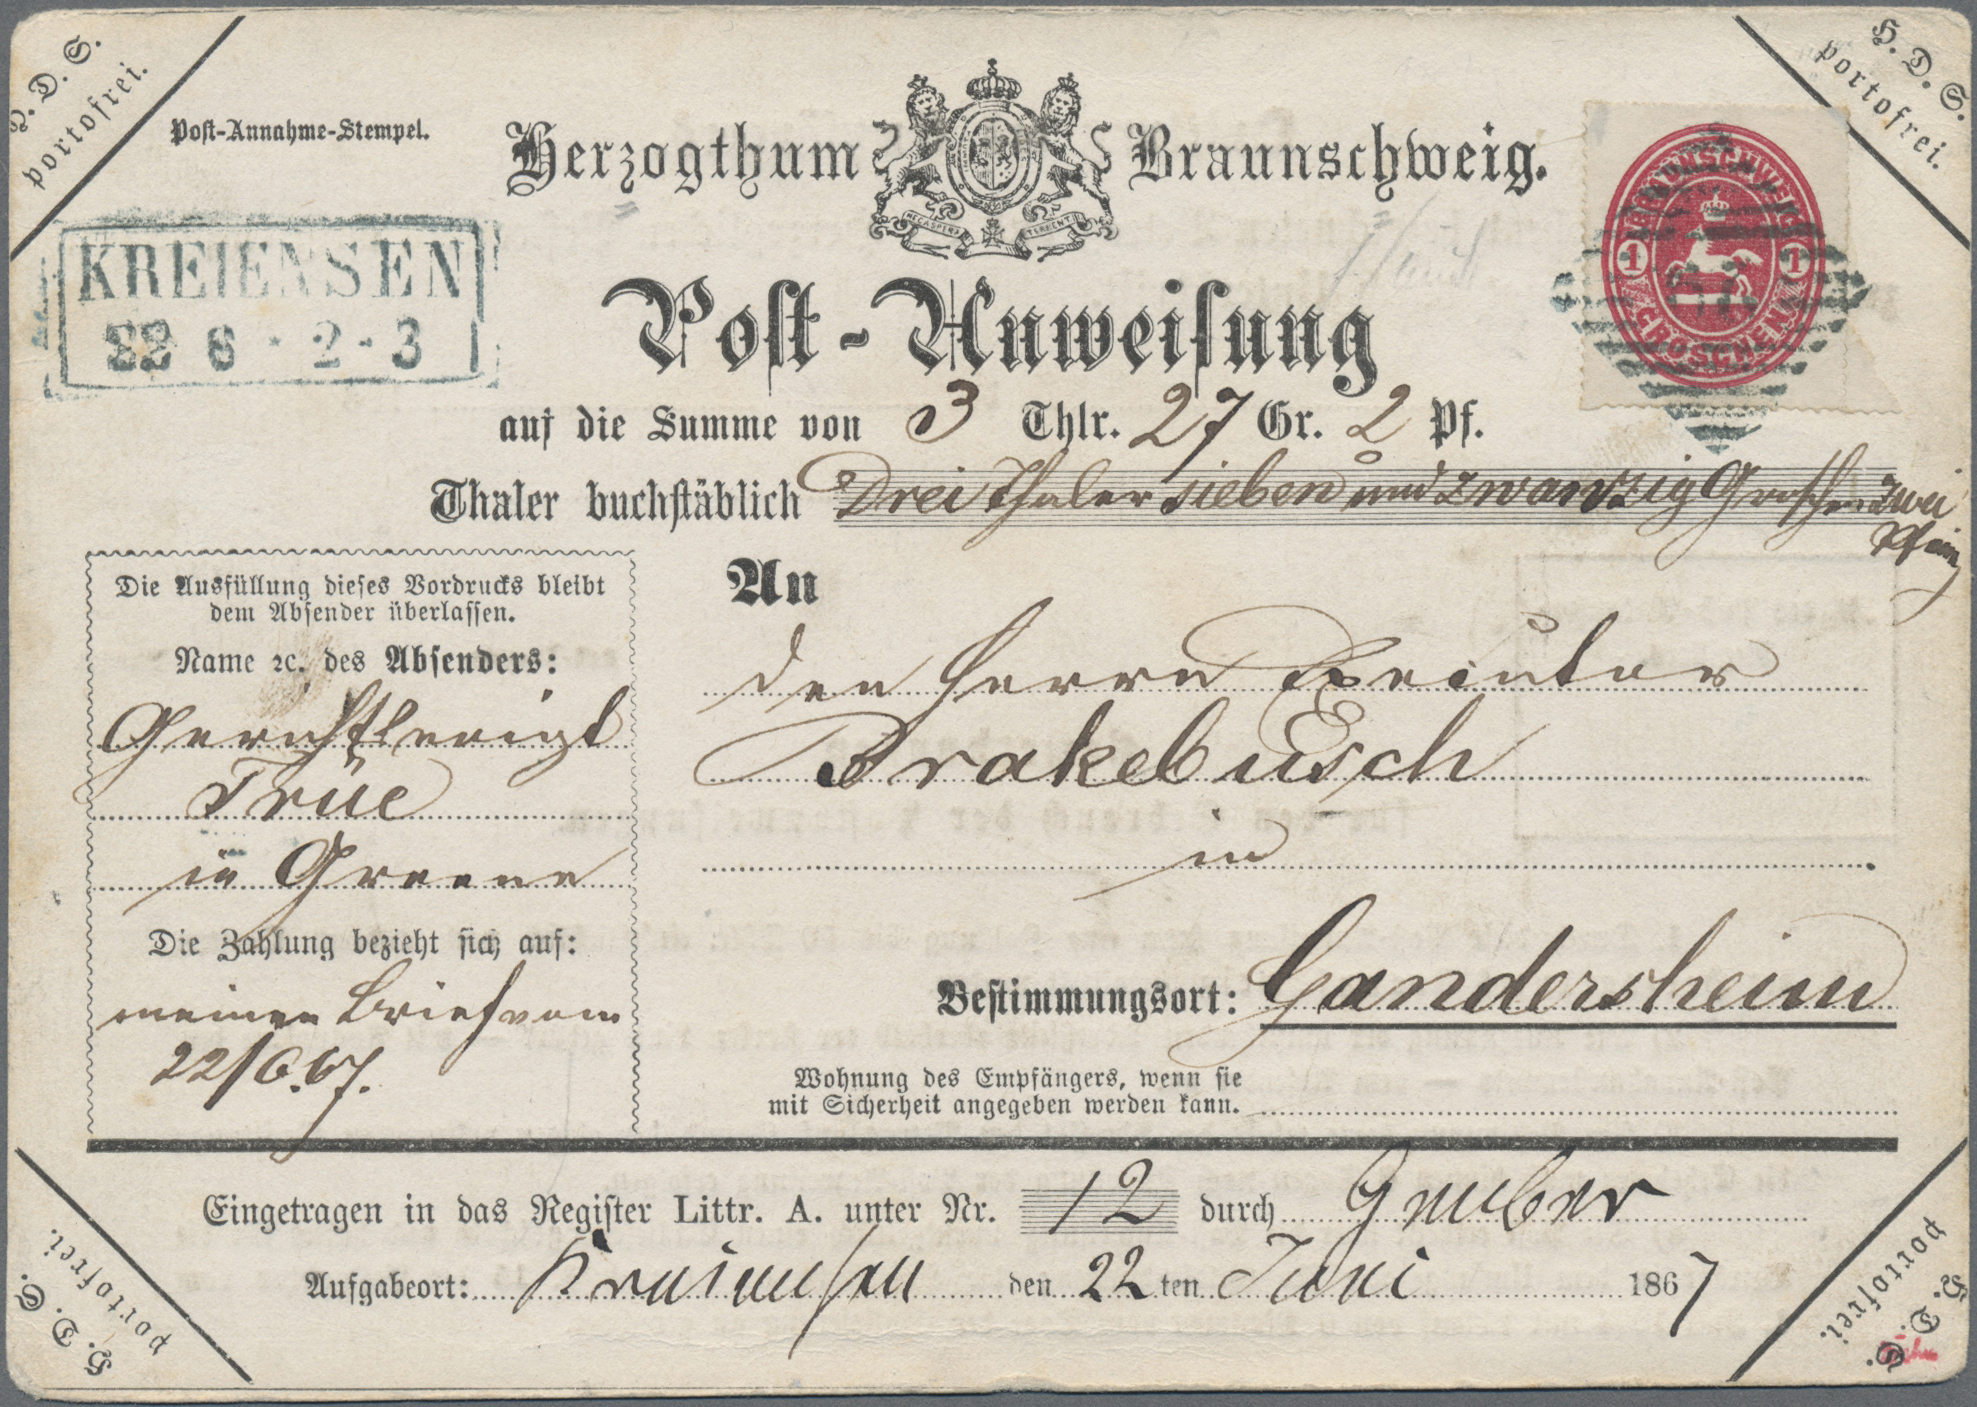 H. D. S.
portofrei.
H. D. S.
portofrei.
Post-Annahme-Stempel.
Herzogthum Braunschweig.
NEC ASPERA TERRENT
BRAUNSCHWEIG
1 1
GROSCHEN
KREIENSEN
22 6 · 2 - 3
Post-Anweisung
auf die Summe von 3 Thlr. 27 Gr. 2 Pf.
Thaler buchstäblich Drei Thaler sieben und zwanzig Groschen zwei
Pfennig
Die Ausfüllung dieses Vordrucks bleibt
dem Absender überlassen.
Name ꝛc. des Absenders:
Trüe
in Greene
Die Zahlung bezieht sich auf:
meinen Brief vom
22/6.67.
An
den Herrn
Brakebusch
in
Bestimmungsort: Gandersheim
Wohnung des Empfängers, wenn sie
mit Sicherheit angegeben werden kann.
Eingetragen in das Register Littr. A. unter Nr. 12 durch Gruber
Aufgabeort: Kreiensen den 22ten Juni 1867
H. D. S.
portofrei.
H. D. S.
portofrei.